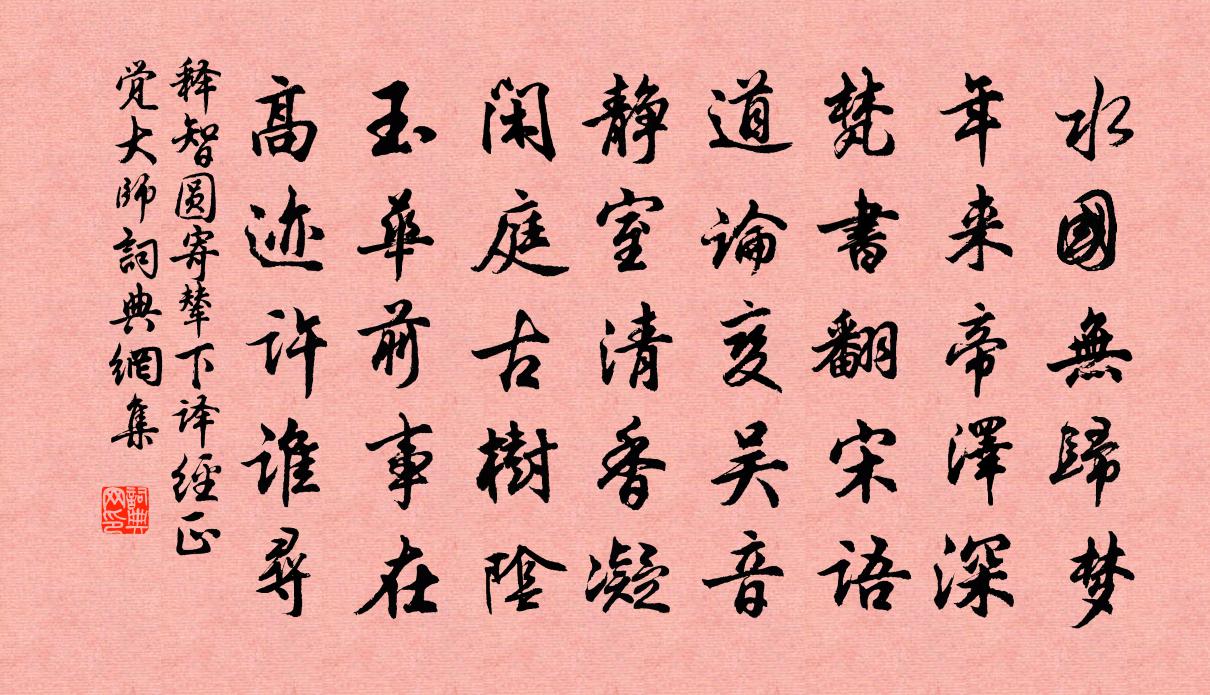 水國無歸梦
年来帝澤深
梵書翻宋语
道論变吴音
静室清香凝
閑庭古樹陰
玉華前事在
高迹许谁尋
释智圆寄辇下译經正
觉大師詞典網集
詞典
网印